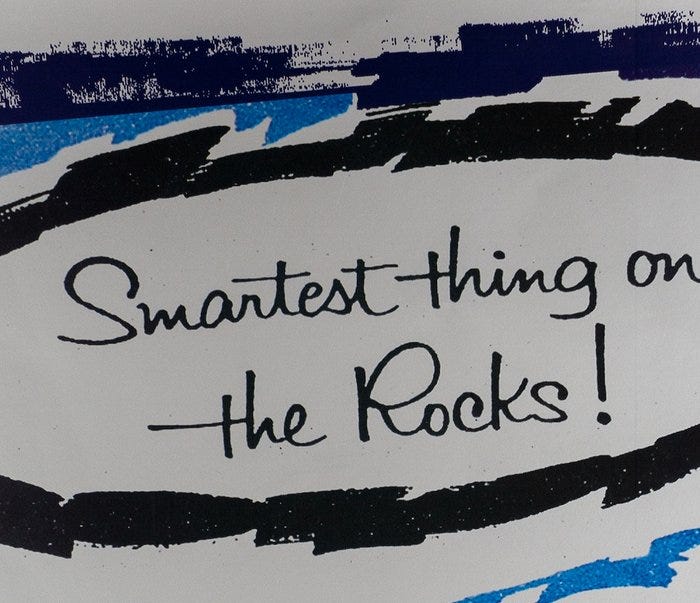 Smartest thing on
the Rocks!